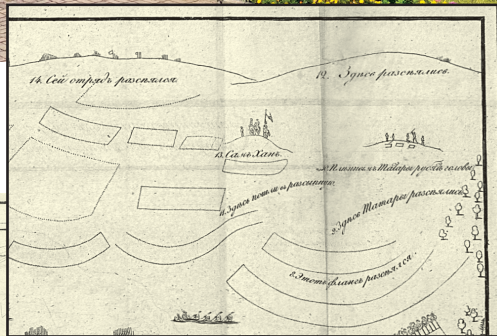 14. Сей отрядъ разсѣялся.
12. Здѣсь разсѣялись.
13. Самъ Ханъ.
Плѣннымъ Татары рубятъ головы
11. Здѣсь пошли въ разсыпную.
9. Здѣсь Татары разсѣялись.
8. Этотъ флангъ разсѣялся.